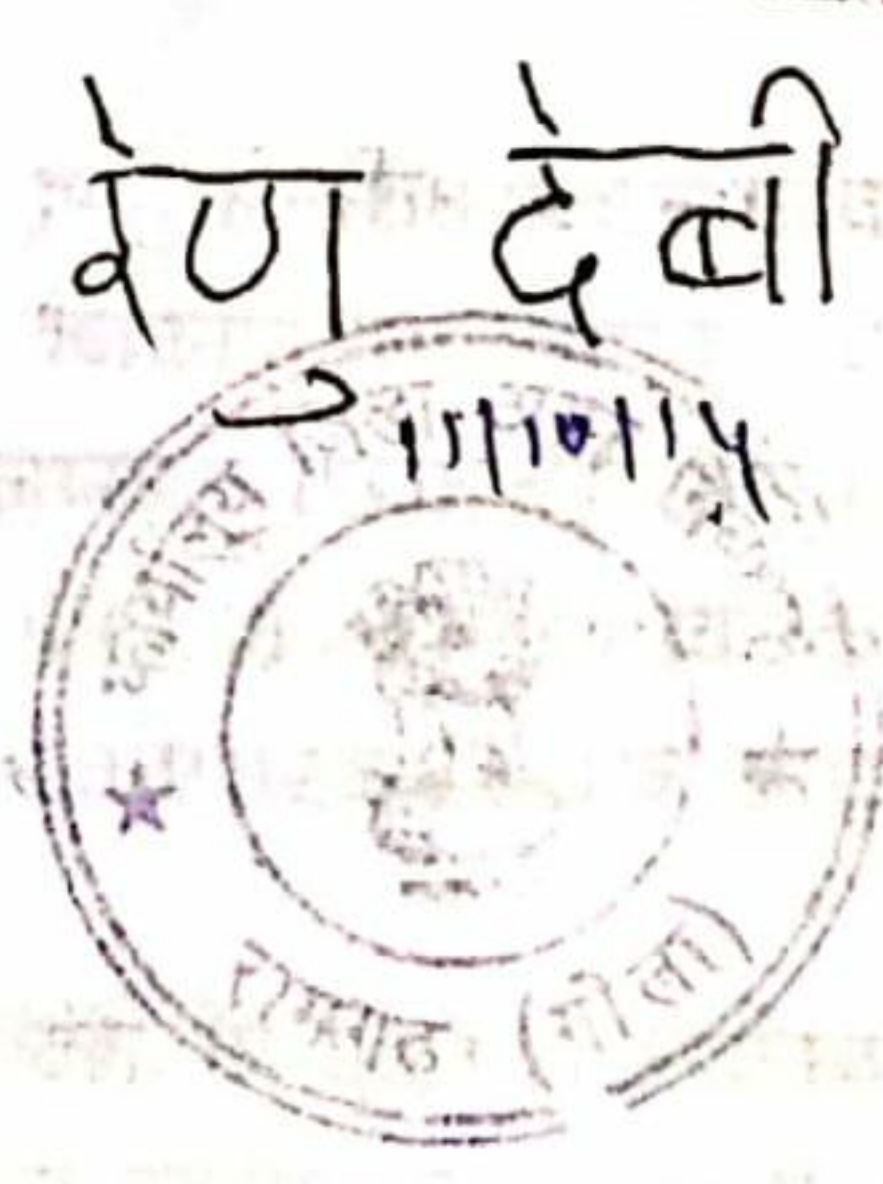 रेणु देबी
15/10/14
कार्यालय
रामगढ़ (गोला)